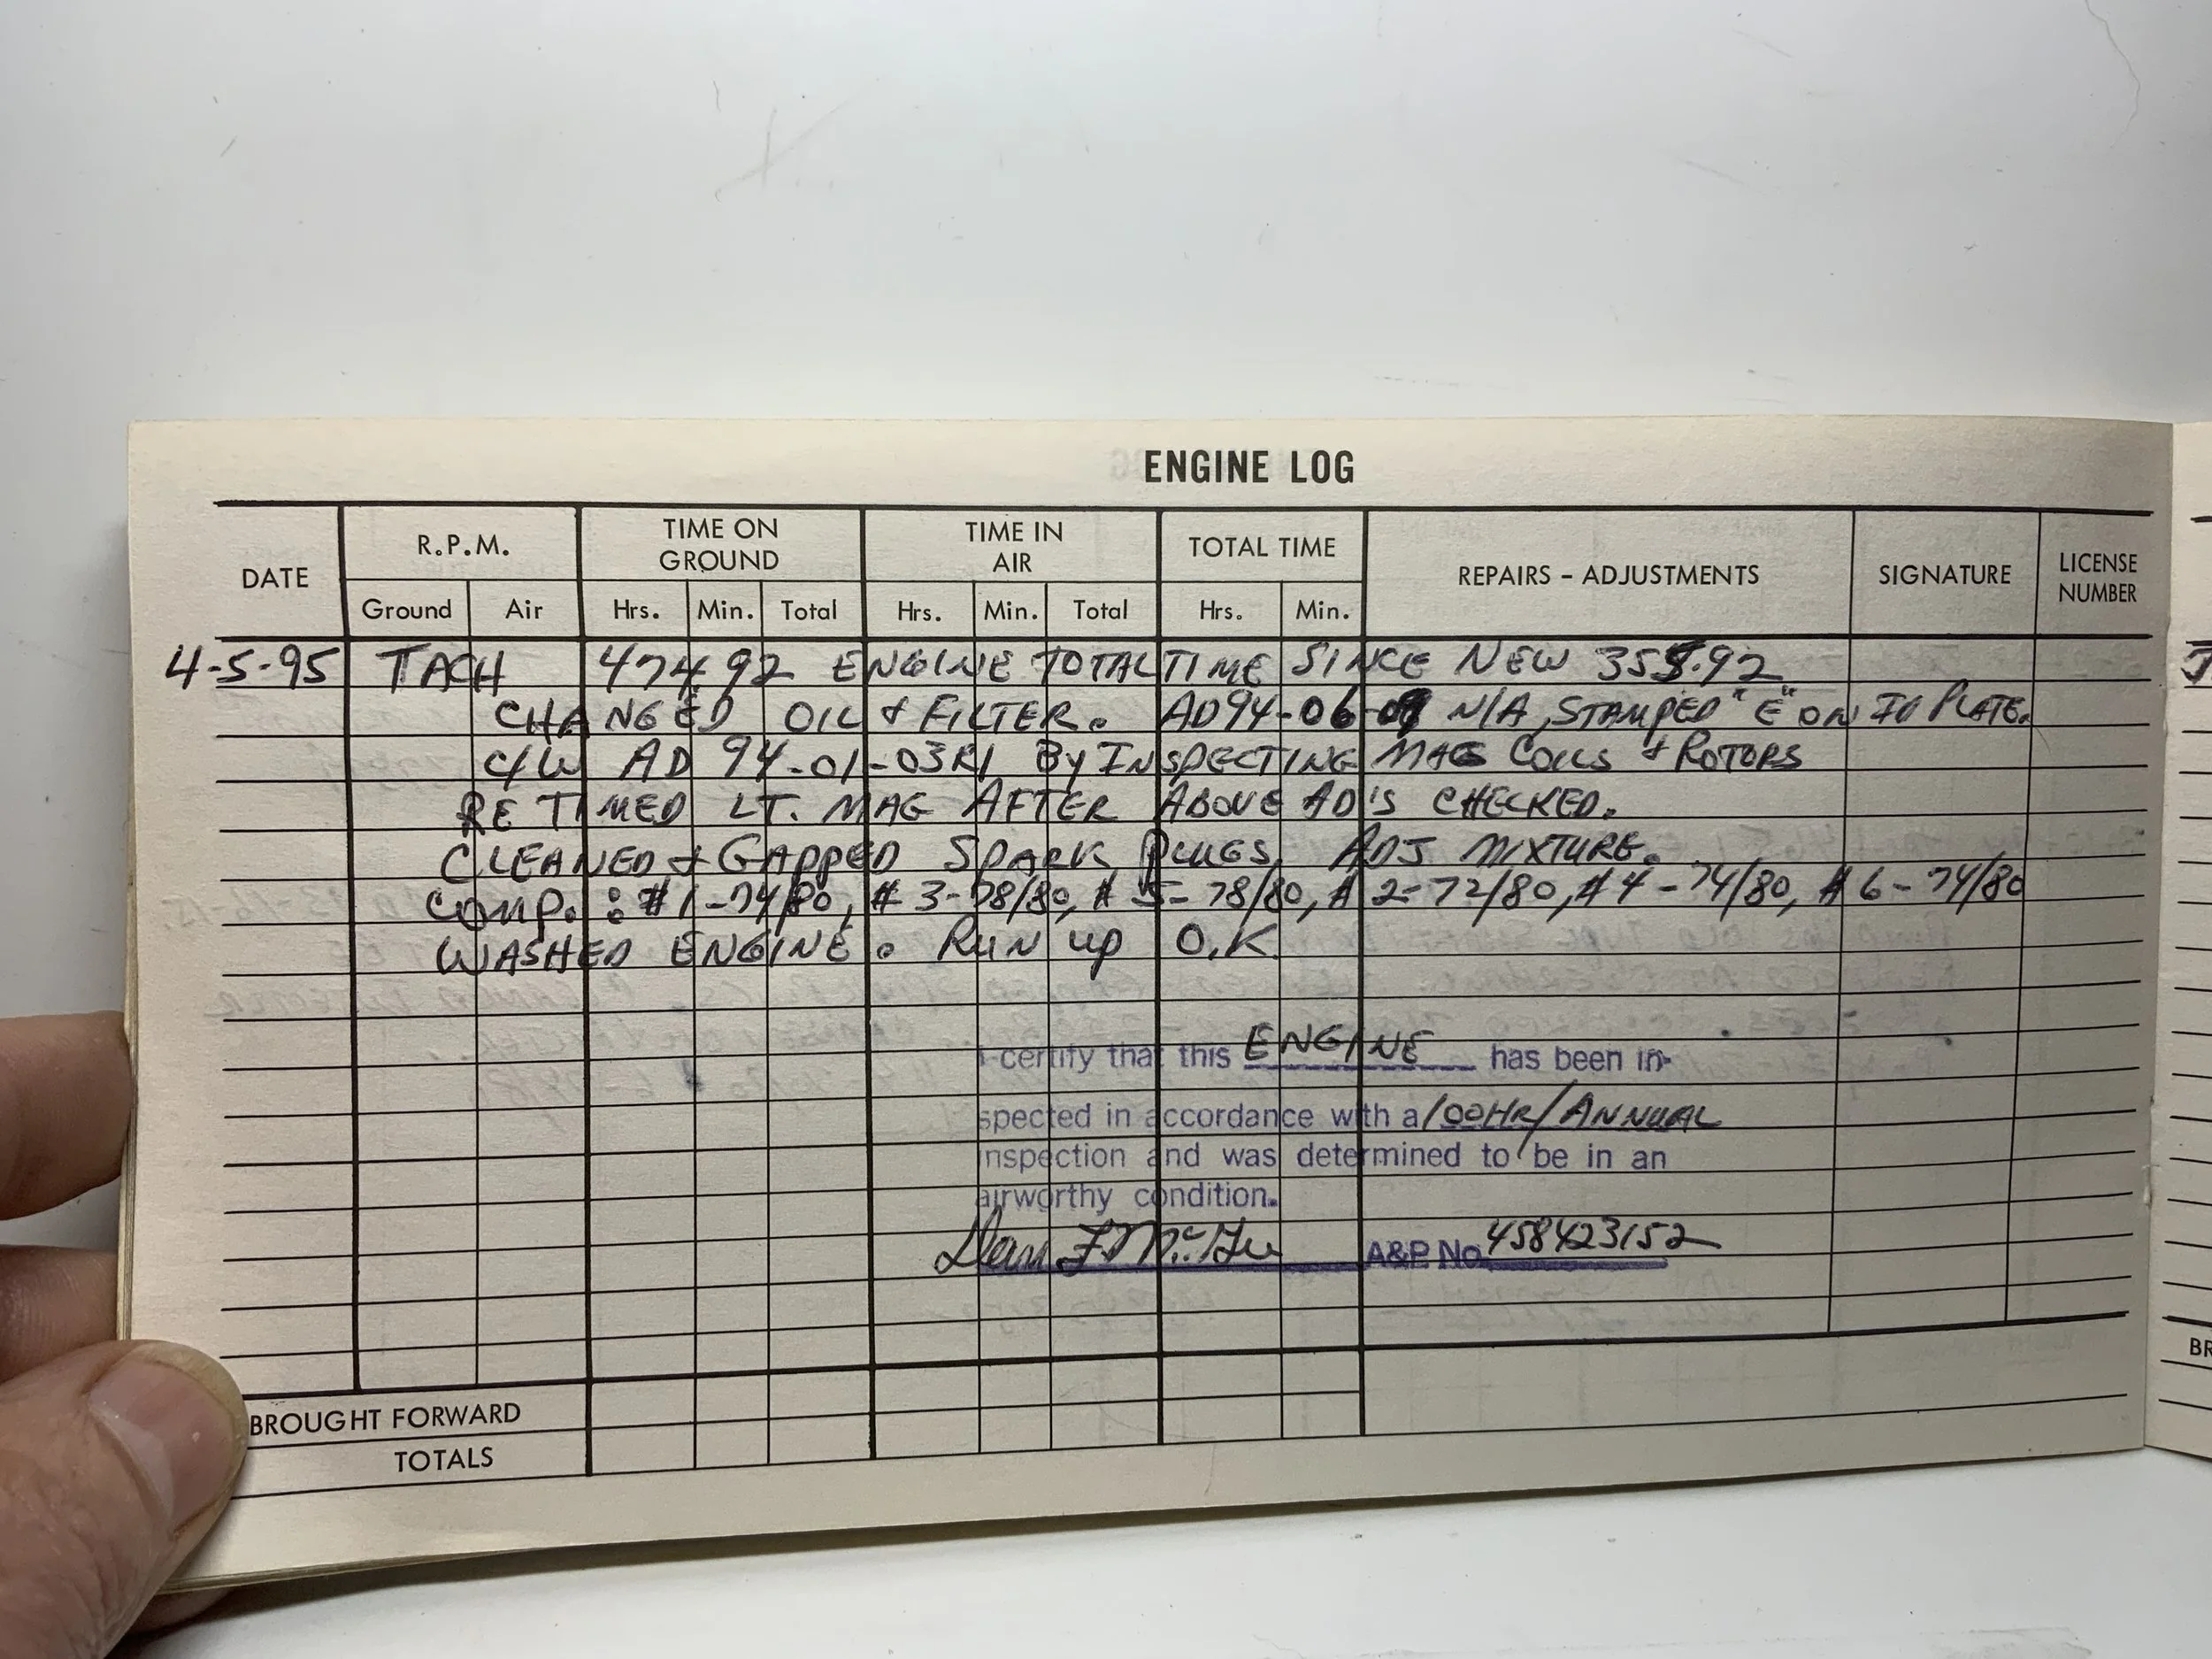 ENGINE LOG
DATE R.P.M. TIME ON GROUND TIME IN AIR TOTAL TIME REPAIRS - ADJUSTMENTS SIGNATURE LICENSE NUMBER
Ground Air Hrs. Min. Total Hrs. Min. Total Hrs. Min.
4-5-95 TACH 474.92 ENGINE TOTAL TIME SINCE NEW 355.92
CHANGED OIL & FILTER. AD94-06-09 N/A, STAMPED "E" ON ID PLATE.
C/W AD 94-01-03R1 By INSPECTING MAG COILS & ROTORS
RETIMED LT. MAG AFTER ABOVE AD'S CHECKED.
CLEANED & GAPPED SPARK PLUGS, ADJ MIXTURE.
COMP. : #1-74/80, #3-78/80, #5-78/80, #2-72/80, #4-74/80, #6-74/80
WASHED ENGINE. RUN UP O.K.
I certify that this ENGINE has been in-
spected in accordance with a 100HR/ANNUAL
inspection and was determined to be in an
airworthy condition.
A&P. No. 458423152
BROUGHT FORWARD
TOTALS
BR